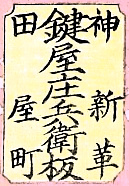 神新革
鍵屋庄兵衛板
田屋町